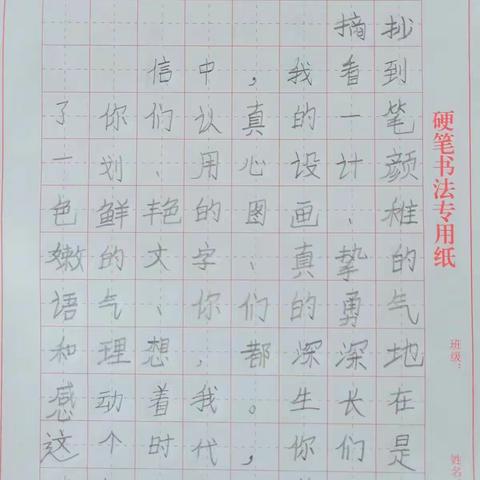 摘抄
信中，我看到
了你们认真的一笔
一划、用心设计颜
色鲜艳的图画、稚
嫩的文字、真挚的
语气、你们的勇气
和理想，都深深地
感动着我。生长在
这个时代，你们是
硬笔书法专用纸
班级：
姓名